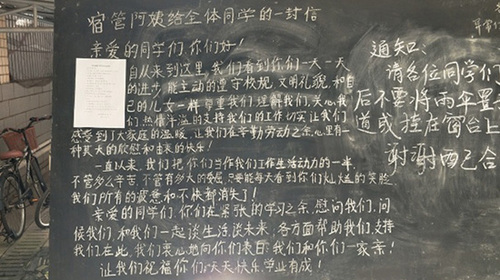 宿管阿姨给全体同学的一封信
亲爱的同学们,你们好!
自从来到这里,我们看到你们一天一天
的进步,能主动的遵守校规,文明礼貌,和自
己的儿女一样尊重我们,理解我们,关心我
们,热情洋溢的支持我们的工作切实让我们
感受到了大家庭的温暖,让我们在辛勤劳动之余,心里有一
种莫大的欣慰和由衷的快乐!
一直以来,我们把你们当作我们工作生活动力的一半,
不管多么辛苦,不管有多大的委屈,只要能每天看到你们灿烂的笑脸,
我们所有的疲惫和不快都消失了!
亲爱的同学们,你们在紧张的学习之余,慰问我们,问
候我们,和我们一起谈生活谈未来,各方面帮助我们,支持
我们,在此,我们衷心地向你们表白:我们和你们一家亲!
让我们祝福你们:天天快乐,学业有成!
通知:
请各位同学们
后不要将雨伞置
道或挂在窗台上
谢谢配合